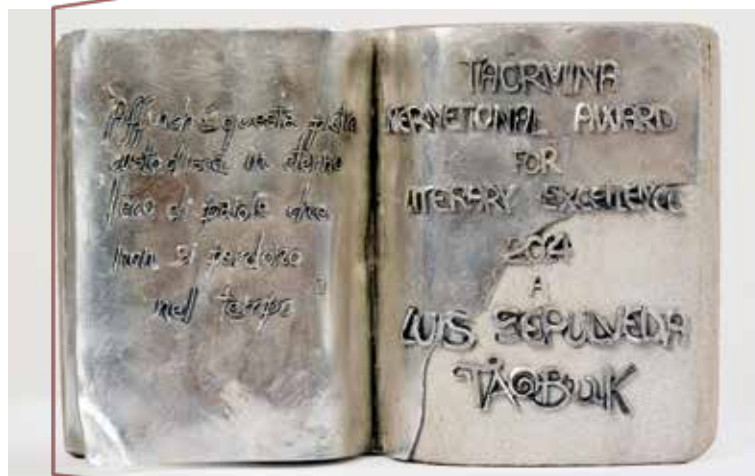 Affinché questa pietra
custodisca in eterno
l'eco di parole che
non si perdono
nel tempo
TAORMINA
AWARD
FOR
LITERARY EXCELLENCE
2014
A
LUIS SEPULVEDA
TAOBUK